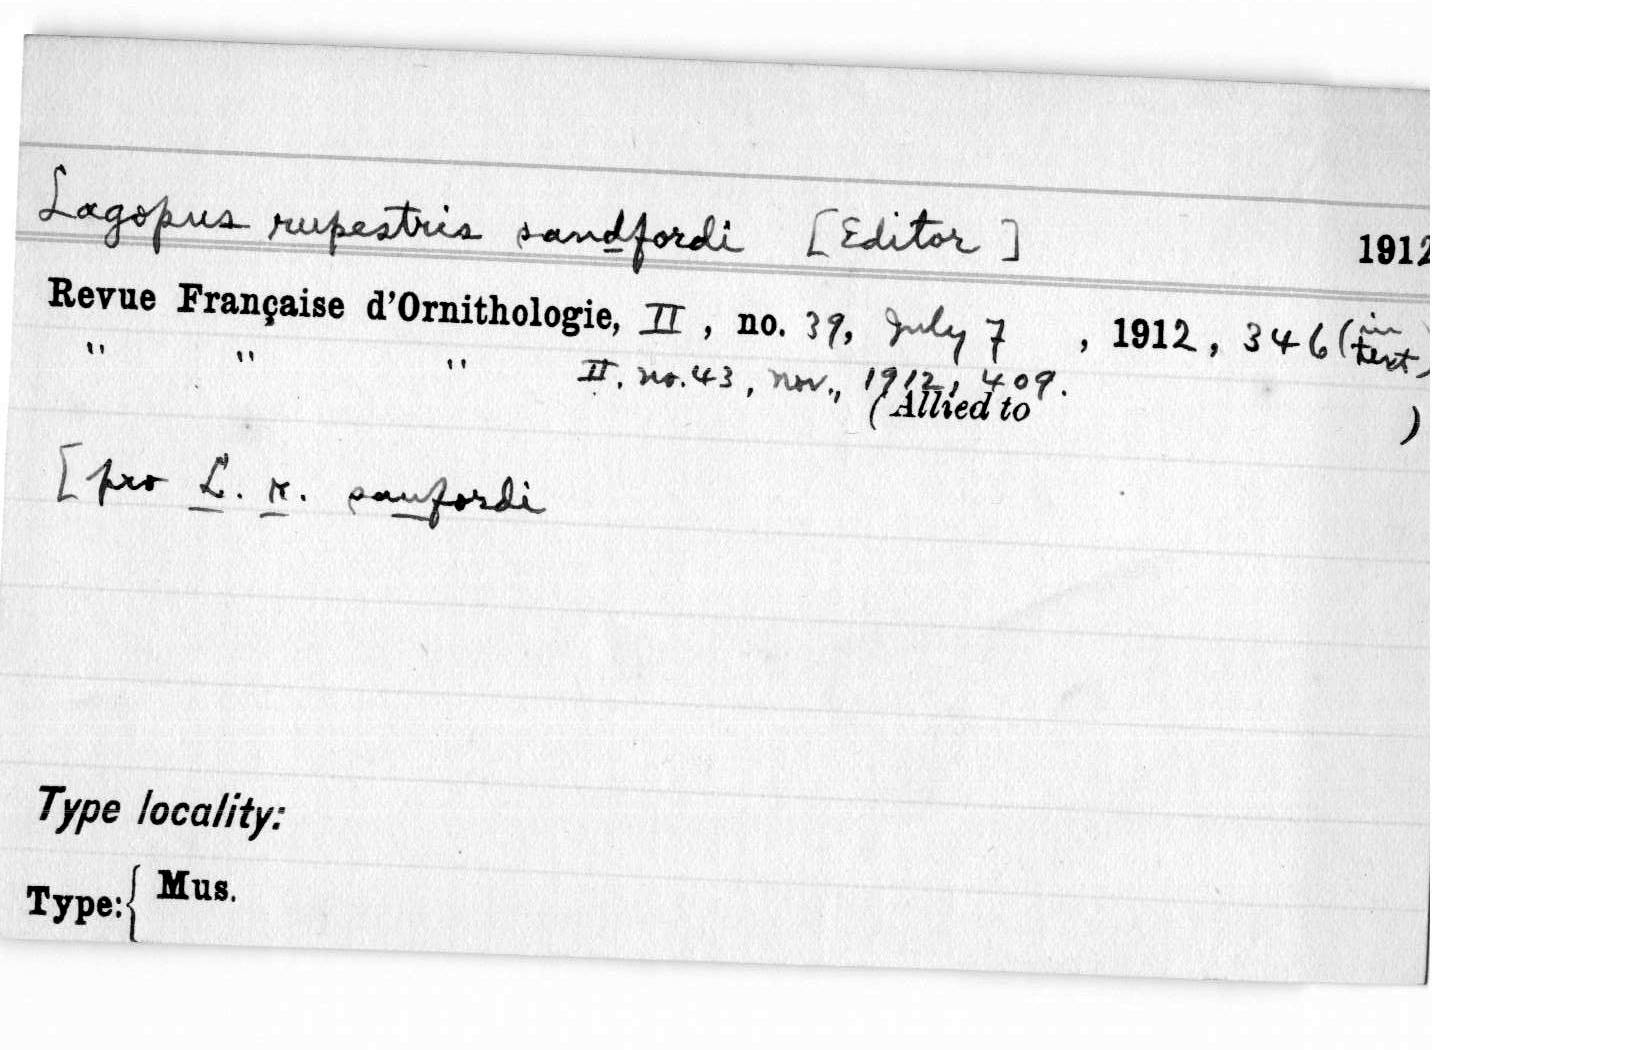 Lagopus rupestris sandfordi [Editor] 1912
Revue Française d'Ornithologie, II, no. 39, July 7, 1912, 346 (in text)
" " " II, no. 43, Nov., 1912, 409.
(Allied to )
[pro L. r. sanfordi
Type locality:
Type: { Mus.